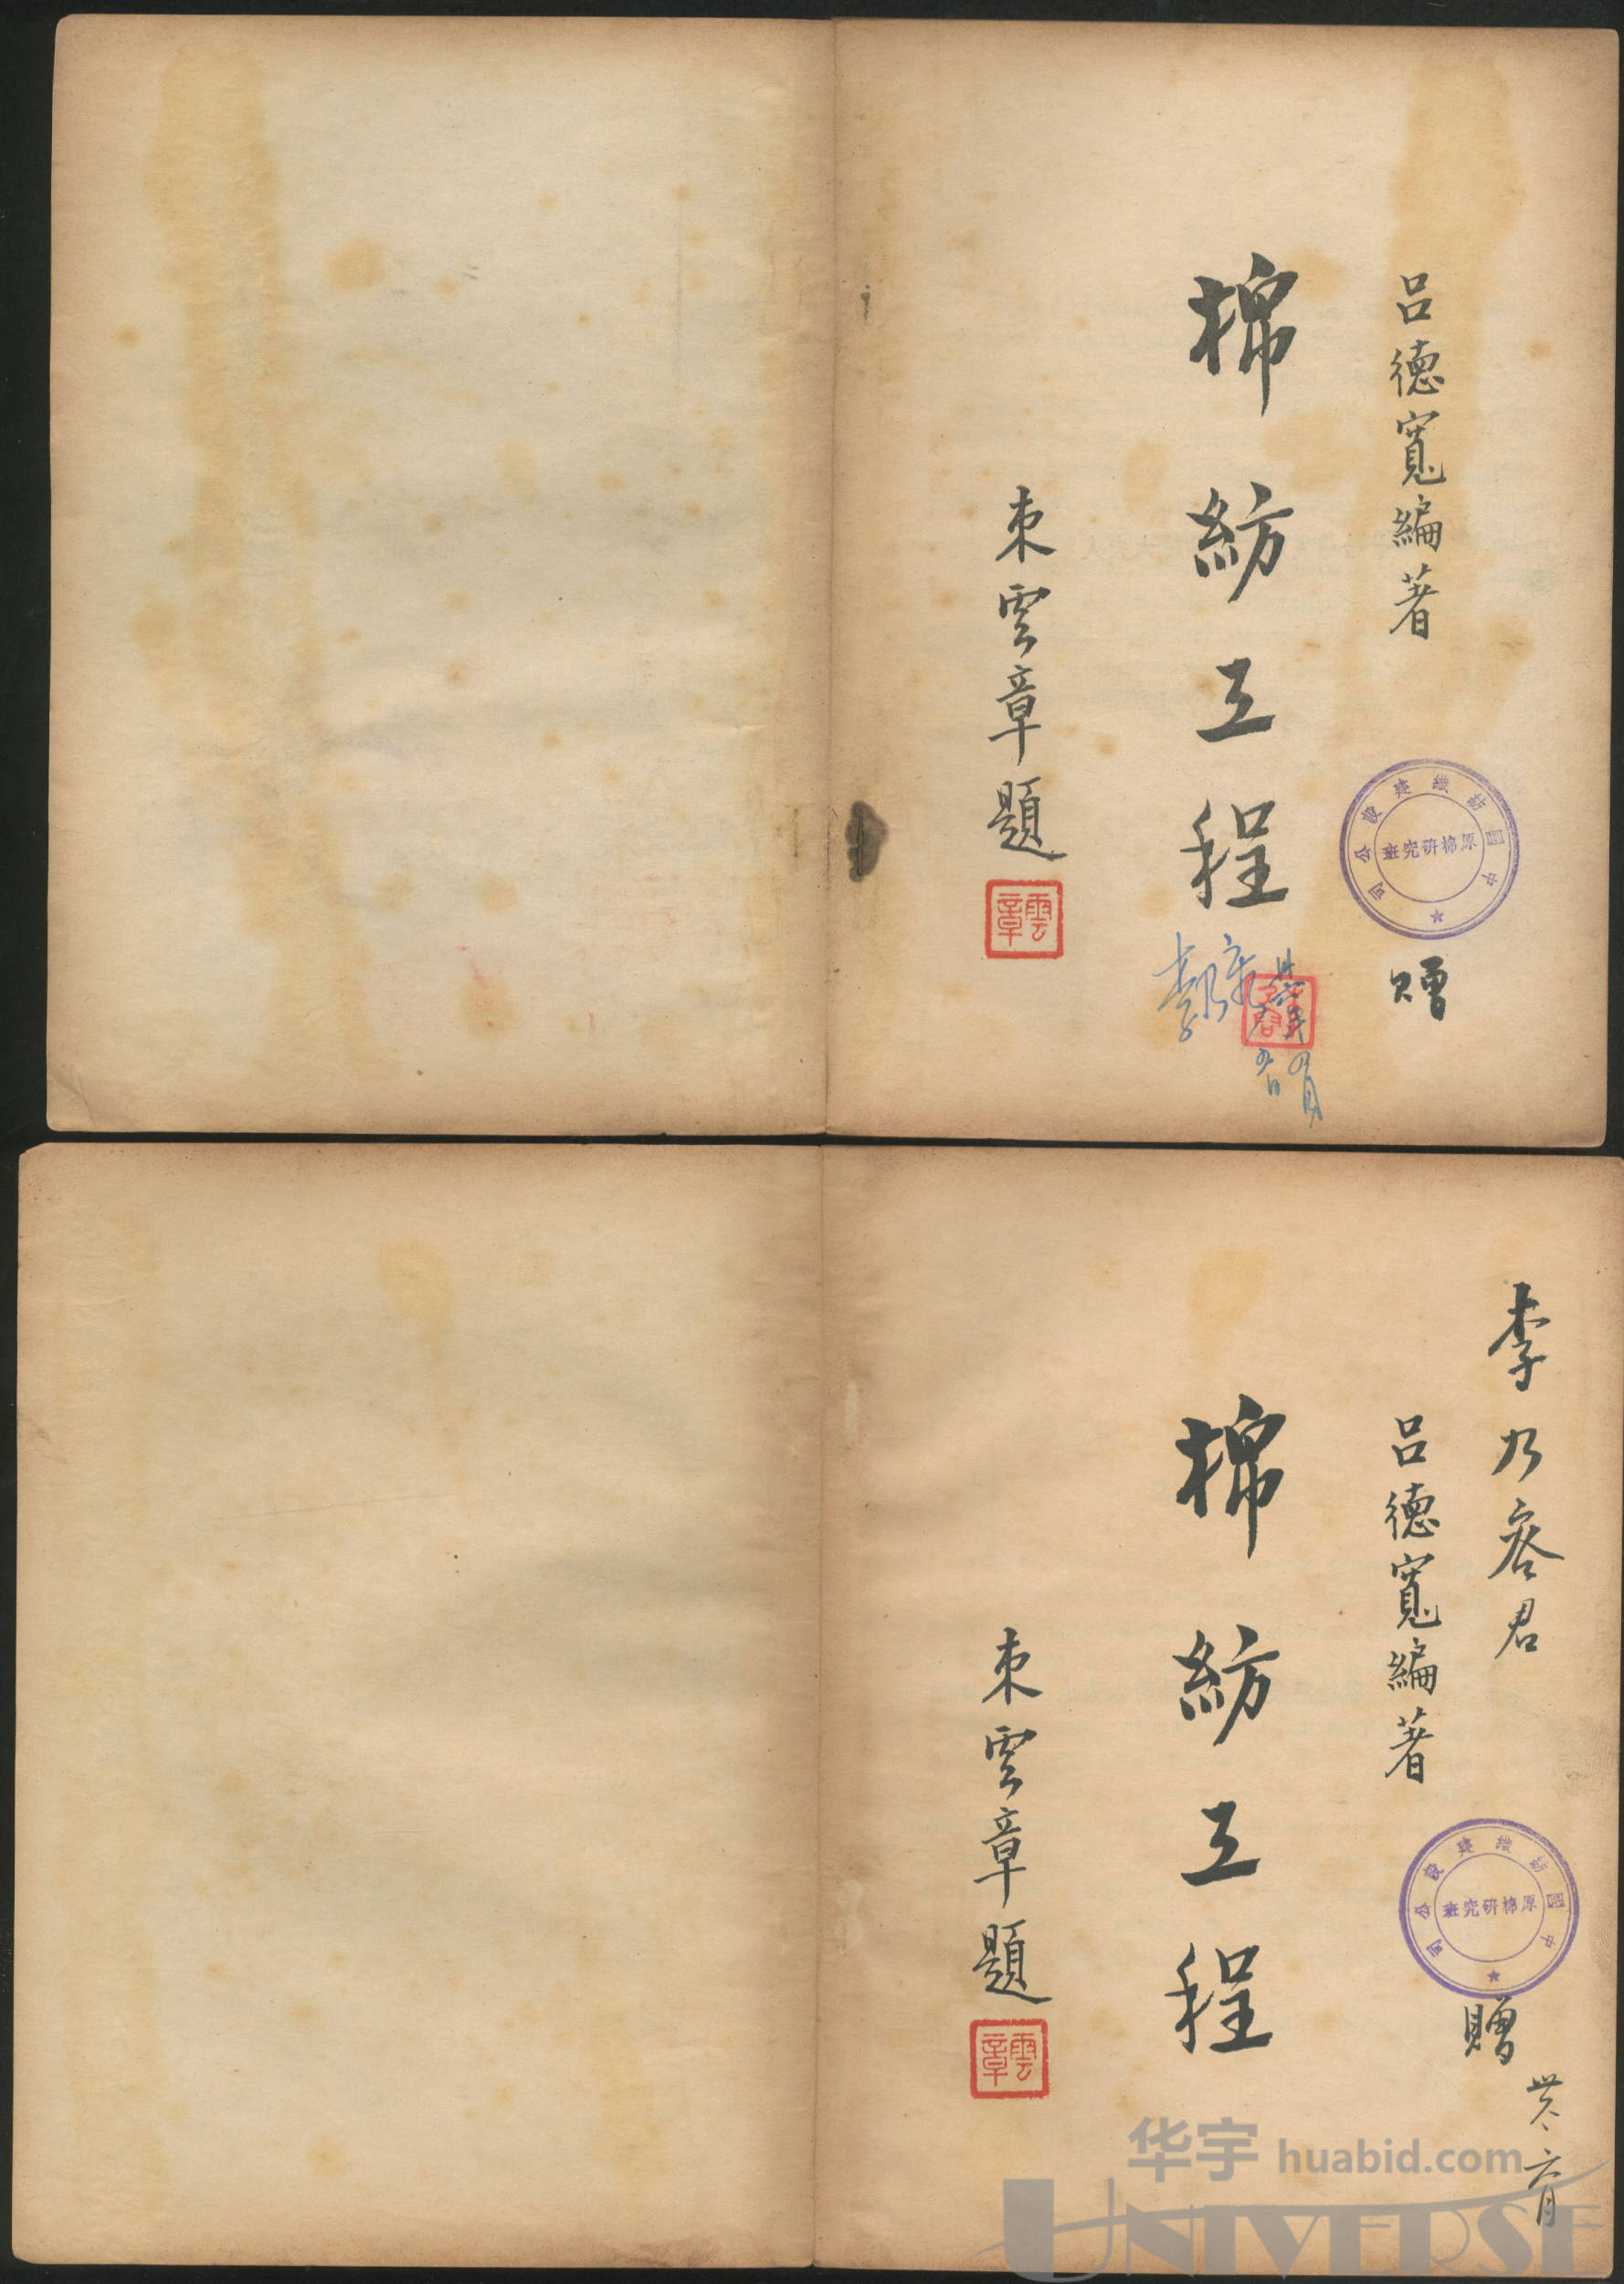 呂德寬編著
中國紡織建設公司
原棉研究班
贈
棉紡工程
束雲章題
雲章
李乃容君
呂德寬編著
中國紡織建設公司
原棉研究班
贈
卅八、六月
棉紡工程
束雲章題
雲章
华宇 huabid.com
UNIVERSE